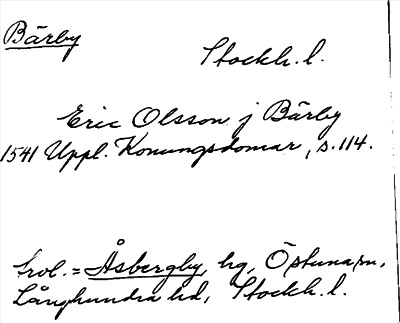 Bärby
Stockh. l.
Eric Olsson j Bärby
1541 Uppl. Konungsdomar, s. 114.
trol. = Åsbergby, hg, Östuna sn,
Långhundra hd, Stockh. l.